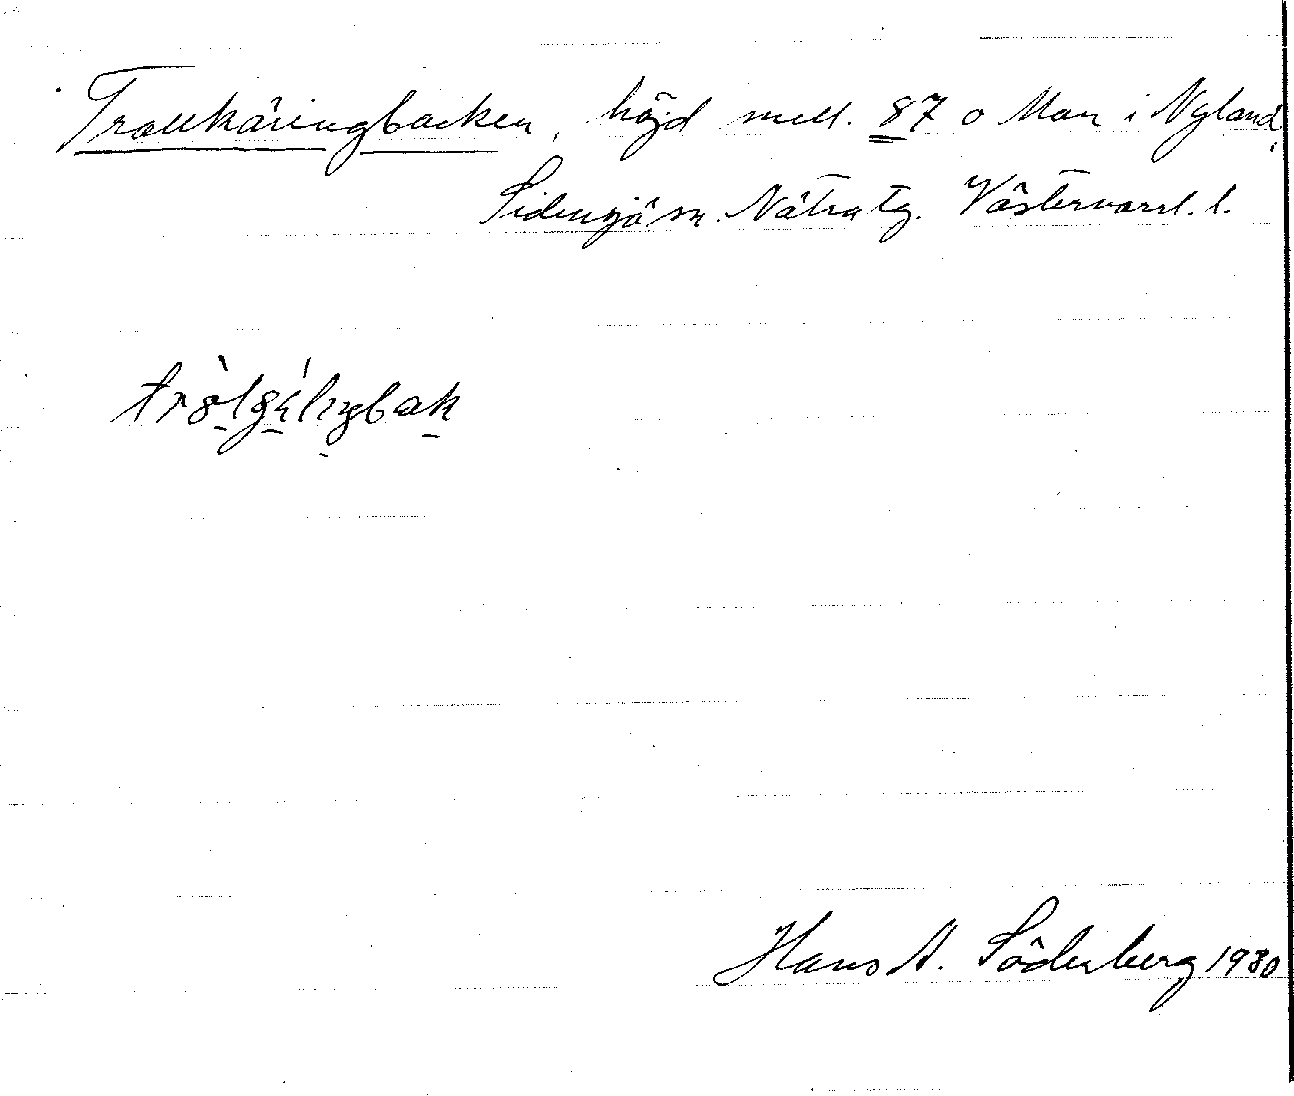 Trollkäringbacken, höjd mell. 87 o Man i Nyland,
Sidensjö sn. Nätra tg. Västernorrl. l.
Hans A. Söderberg 1930